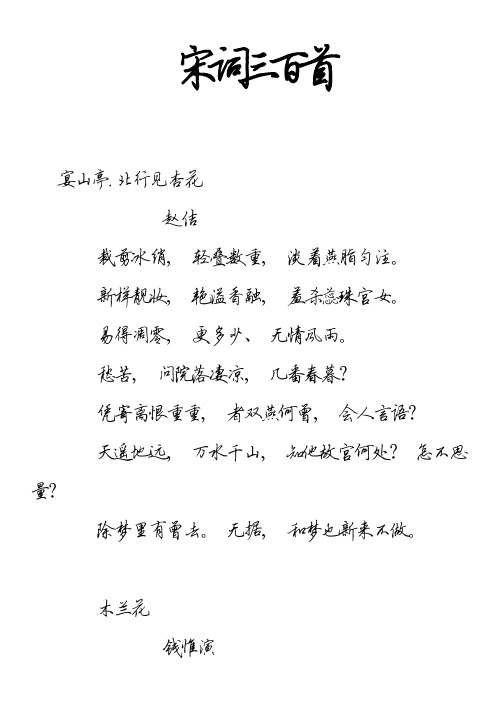 宋词三百首
宴山亭.北行见杏花
赵佶
裁剪冰绡， 轻叠数重， 淡着燕脂匀注。
新样靓妆， 艳溢香融， 羞杀蕊珠宫女。
易得凋零， 更多少、 无情风雨。
愁苦， 问院落凄凉， 几番春暮？
凭寄离恨重重， 者双燕何曾， 会人言语？
天遥地远， 万水千山， 知他故宫何处？ 怎不思
量？
除梦里有曾去。 无据， 和梦也新来不做。
木兰花
钱惟演